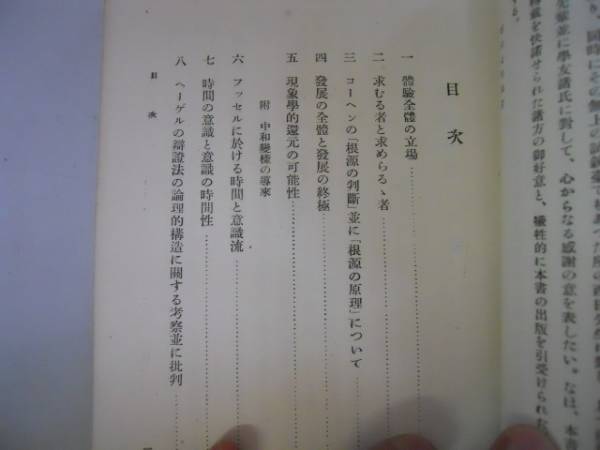 り、同時にその無上の試
先輩並に學友諸氏に對して、心からなる感謝の意を表したい。なほ、本書
を快諾せられた諸方の御好意と、犠牲的に本書の出版を引受けられた
る。
目次
一 體驗全體の立場
二 求むる者と求めらるゝ者
三 コーヘンの「根源の判斷」並に「根源の原理」について
四 發展の全體と發展の終極
五 現象學的還元の可能性
附 中和變樣の導來
六 フッセルに於ける時間と意識流
七 時間の意識と意識の時間性
八 ヘーゲルの辯證法の論理的構造に關する考察並に批判
目次